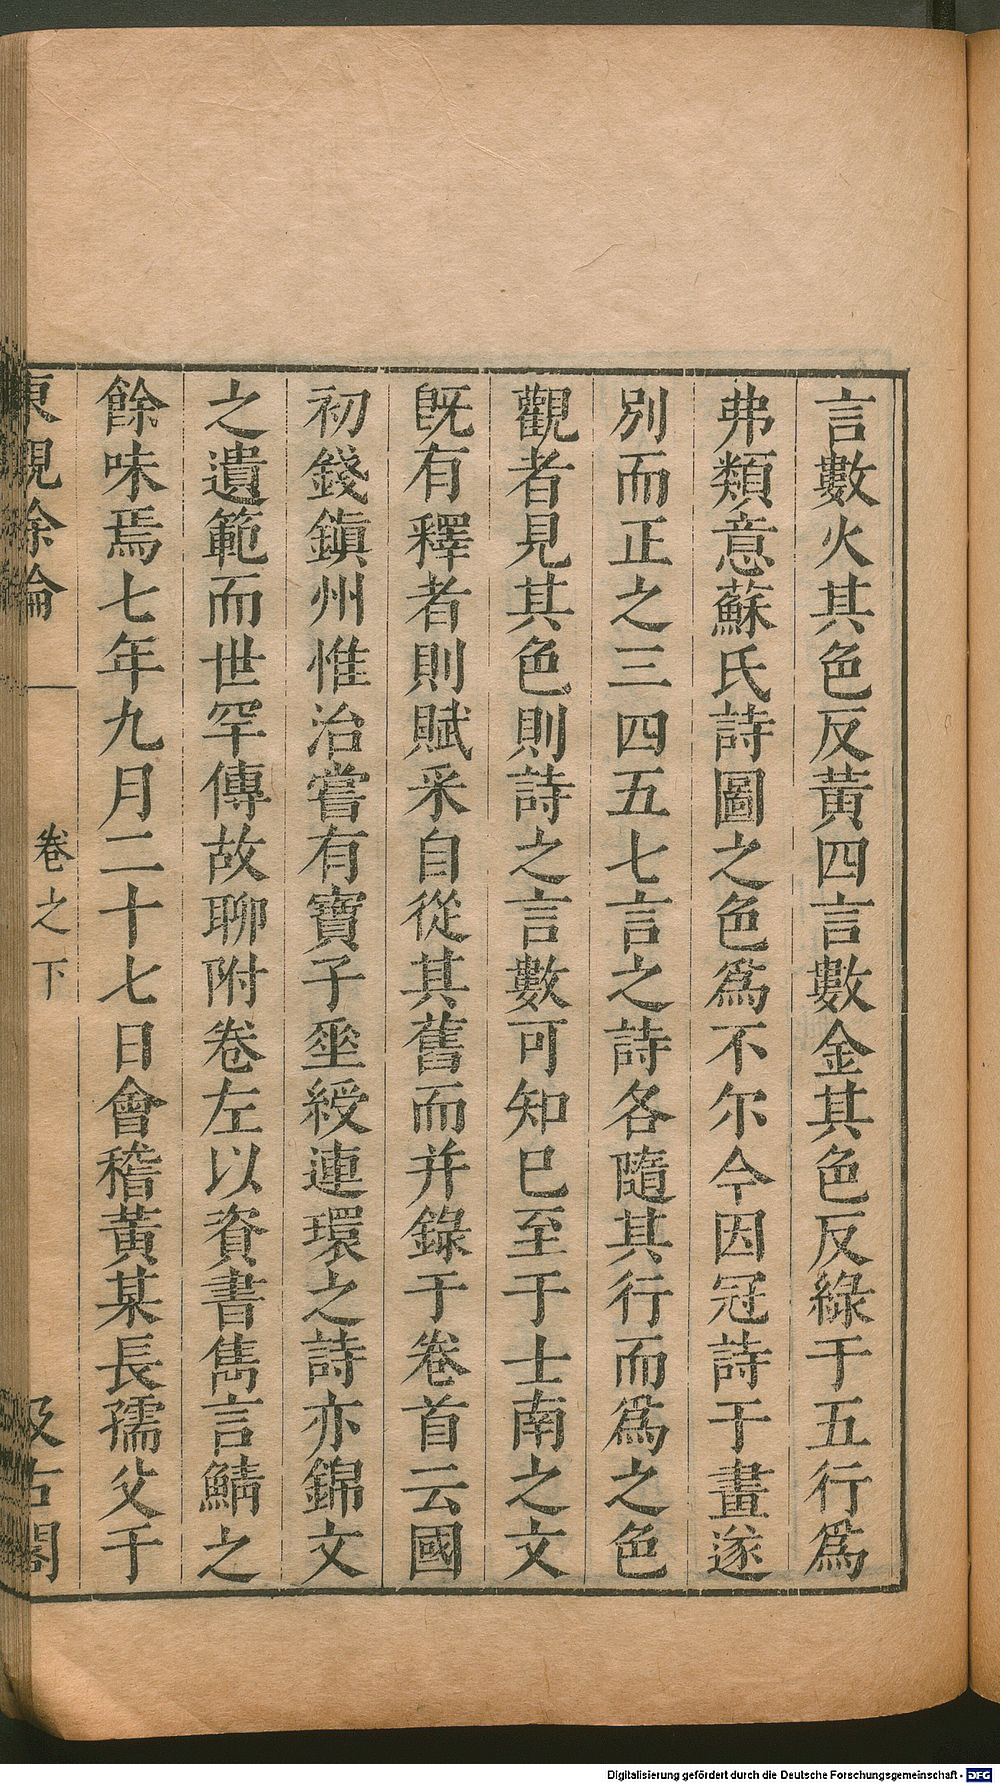 言數火其色反黃四言數金其色反綠于五行爲
弗類意蘇氏詩圖之色爲不尔今因冠詩于畫遂
別而正之三四五七言之詩各隨其行而爲之色
觀者見其色則詩之言數可知已至于士南之文
旣有釋者則賦釆自從其舊而并錄于卷首云國
初錢鎭州惟治嘗有寶子㘴綬連環之詩亦錦文
之遺範而世罕傳故聊附卷左以資書雋言鯖之
餘味焉七年九月二十七日會稽黃某長孺父于
東觀餘論
卷之下
汲古閣
Digitalisierung gefördert durch die Deutsche Forschungsgemeinschaft - DFG